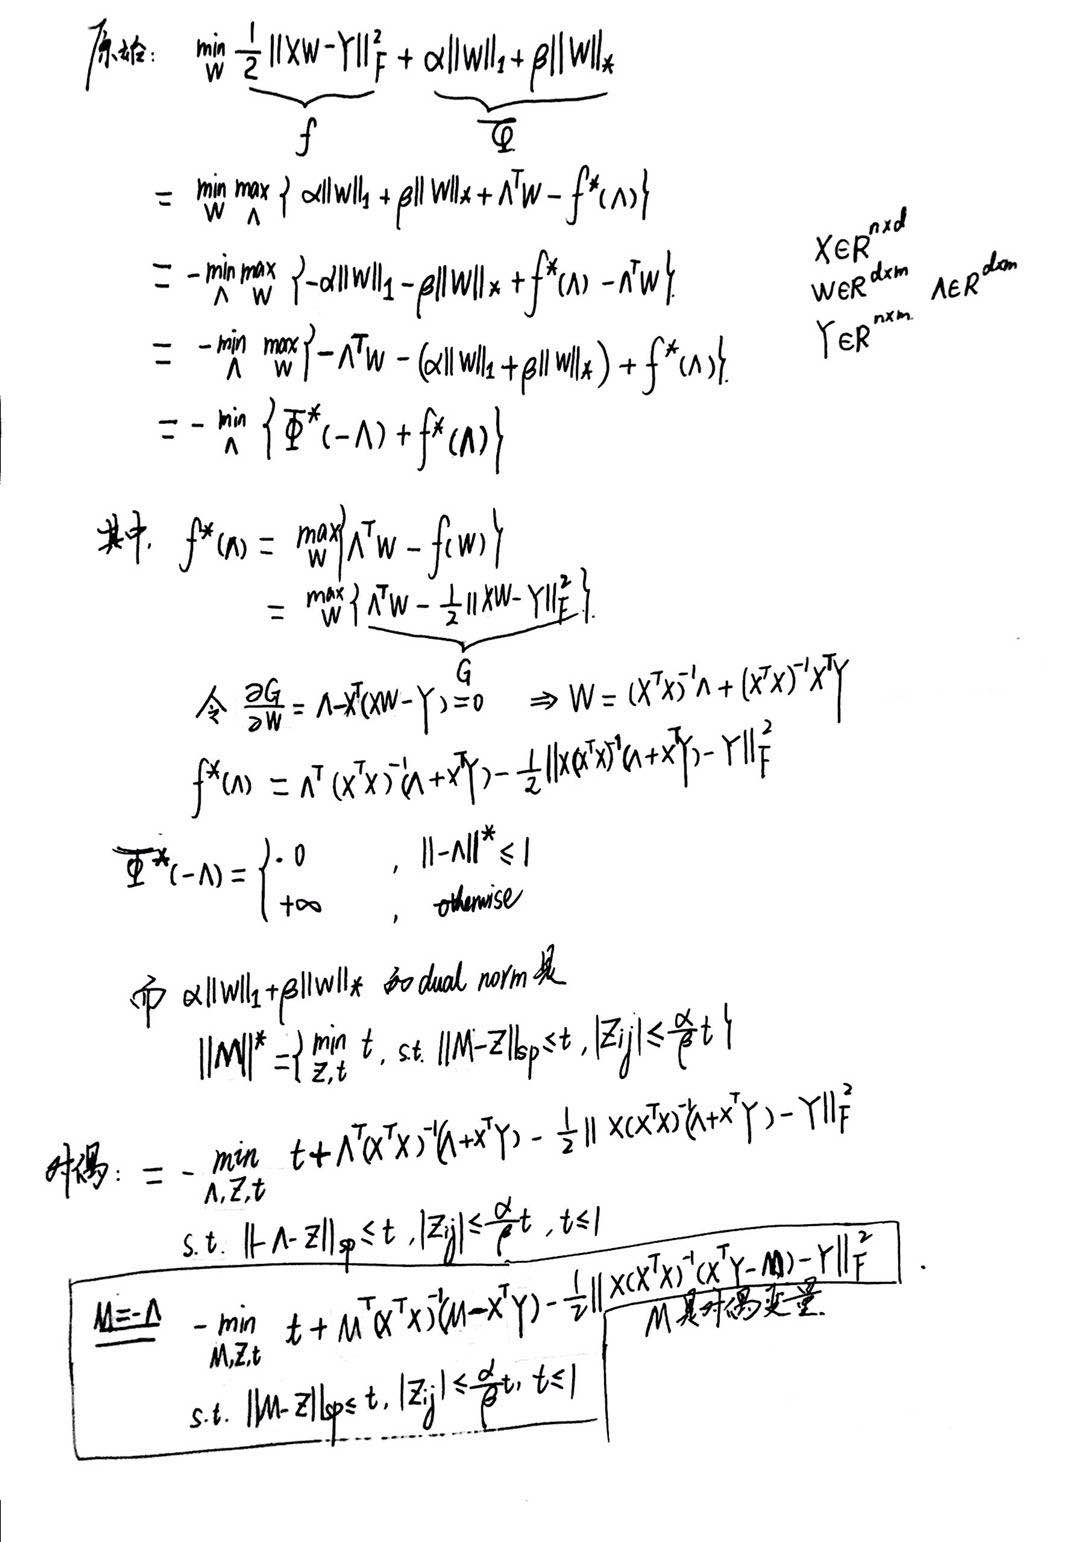 原始: min_W 1/2 ||XW-Y||_F^2 + α||W||_1 + β||W||_*
f Φ
= min_W max_Λ { α||W||_1 + β||W||_* + Λ^T W - f^*(Λ) }
X∈R^{n×d}
= -min_Λ max_W { -α||W||_1 - β||W||_* + f^*(Λ) - Λ^T W }
W∈R^{d×m} Λ∈R^{d×m}
Y∈R^{n×m}
= -min_Λ max_W { -Λ^T W - (α||W||_1 + β||W||_*) + f^*(Λ) }
= -min_Λ { Φ^*(-Λ) + f^*(Λ) }
其中, f^*(Λ) = max_W { Λ^T W - f(W) }
= max_W { Λ^T W - 1/2 ||XW-Y||_F^2 }
G
令 ∂G/∂W = Λ-X^T(XW-Y) = 0 ⇒ W = (X^T X)^{-1}Λ + (X^T X)^{-1}X^T Y
f^*(Λ) = Λ^T (X^T X)^{-1}(Λ+X^T Y) - 1/2 ||X(X^T X)^{-1}(Λ+X^T Y) - Y||_F^2
Φ^*(-Λ) = { 0 , ||-Λ||^* ≤ 1
+∞ , otherwise
而 α||W||_1 + β||W||_* 的 dual norm 是
||M||^* = { min_{Z,t} t, s.t. ||M-Z||_sp ≤ t, |Z_ij| ≤ α/β t }
对偶: = - min_{Λ,Z,t} t + Λ^T(X^T X)^{-1}(Λ+X^T Y) - 1/2 || X(X^T X)^{-1}(Λ+X^T Y) - Y||_F^2
s.t. ||-Λ-Z||_sp ≤ t, |Z_ij| ≤ α/β t, t ≤ 1
M=-Λ - min_{M,Z,t} t + M^T(X^T X)^{-1}(M-X^T Y) - 1/2 || X(X^T X)^{-1}(X^T Y-M) - Y||_F^2
M 是对偶变量.
s.t. ||M-Z||_sp ≤ t, |Z_ij| ≤ α/β t, t ≤ 1